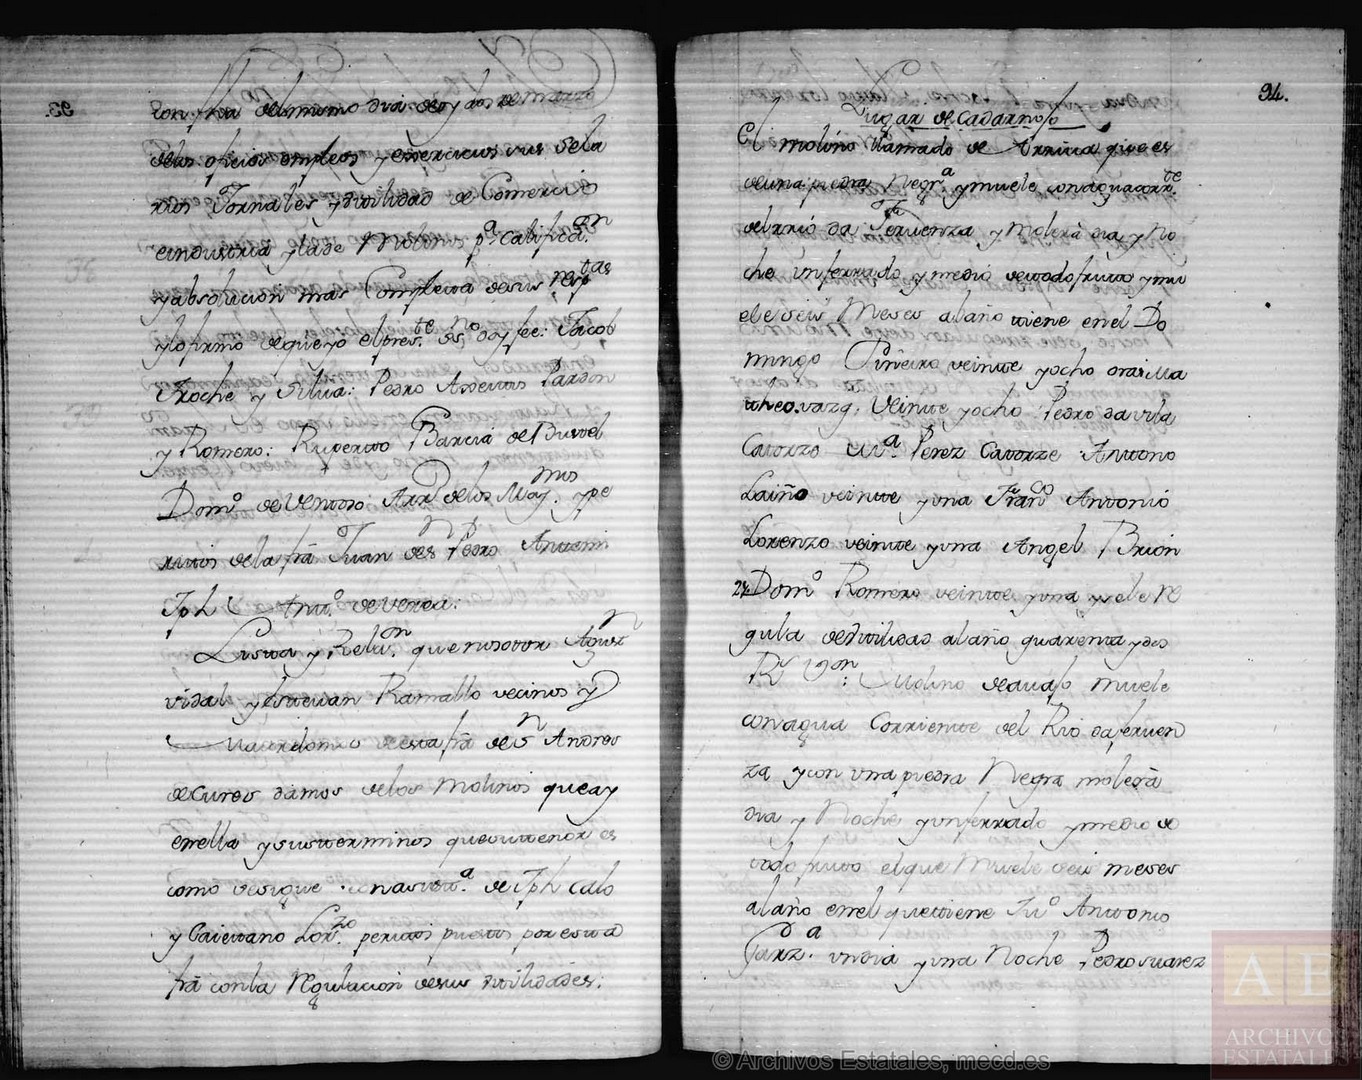 93.
con fha del mismo dia de oy dos de marzo
delos oficios empleos y exercicios sus Sela
rios Jornales y utilidad de Comercio
e industria y la de Molinos pª Calificaon
y absolucion mas Completa de sus resptas
y lo firmo de que yo el preste Sno doy fee: Jacob
Troche y Silua: Pedro Assensio Pardon
y Romero: Ruperto Barcia de Burel
Domº de Ventoso Arr de los Maymos y pe
ritos de la frª Juan des Pedro Antenio
Jph Antº de Verea:
Lista y Relaon que nosotros Agusn
vidal y estevan Ramallo vecinos y
Maiordomos de esta frª de Sn Andres
de Cures damos de los Molinos que ay
en ella y sus terminos que su tenor es
como se sigue con asistª de Jph Calo
y Caietano Lorzo peritos puestos por esta
frª con la Regulacion de sus utilidades:
94.
Lugar de Cadarnoso
El molino llamado de Arriua que es
de una piedra Negrª y muele con agua corrte
del rio da Feruenza y Molerà dia y No
che un ferrado y medio de todo fruto y mu
ele seis Meses al año tiene en el Do
mingo Piñeiro veinte y ocho oras Ma
theo vazq. Veinte y ocho Pedro da vila
Catorze Mª Perez Catorze Antonio
Laiño veinte y una Franco Antonio
Lorenzo veinte y una Angel Brion
27 Domº Romero veinte y una y se le re
gula de utilidad al año quarenta y dos
Rs von: Molino de auajo muele
con agua Corriente del Rio da feruen
za y con una piedra Negra molerà
dia y Noche un ferrado y medio de
todo fruto el que Muele seis meses
al año en el que tiene Juº Antonio
Garzª un dia y una Noche Pedro suarez
© Archivos Estatales, mecd.es
AE
ARCHIVOS
ESTATALES